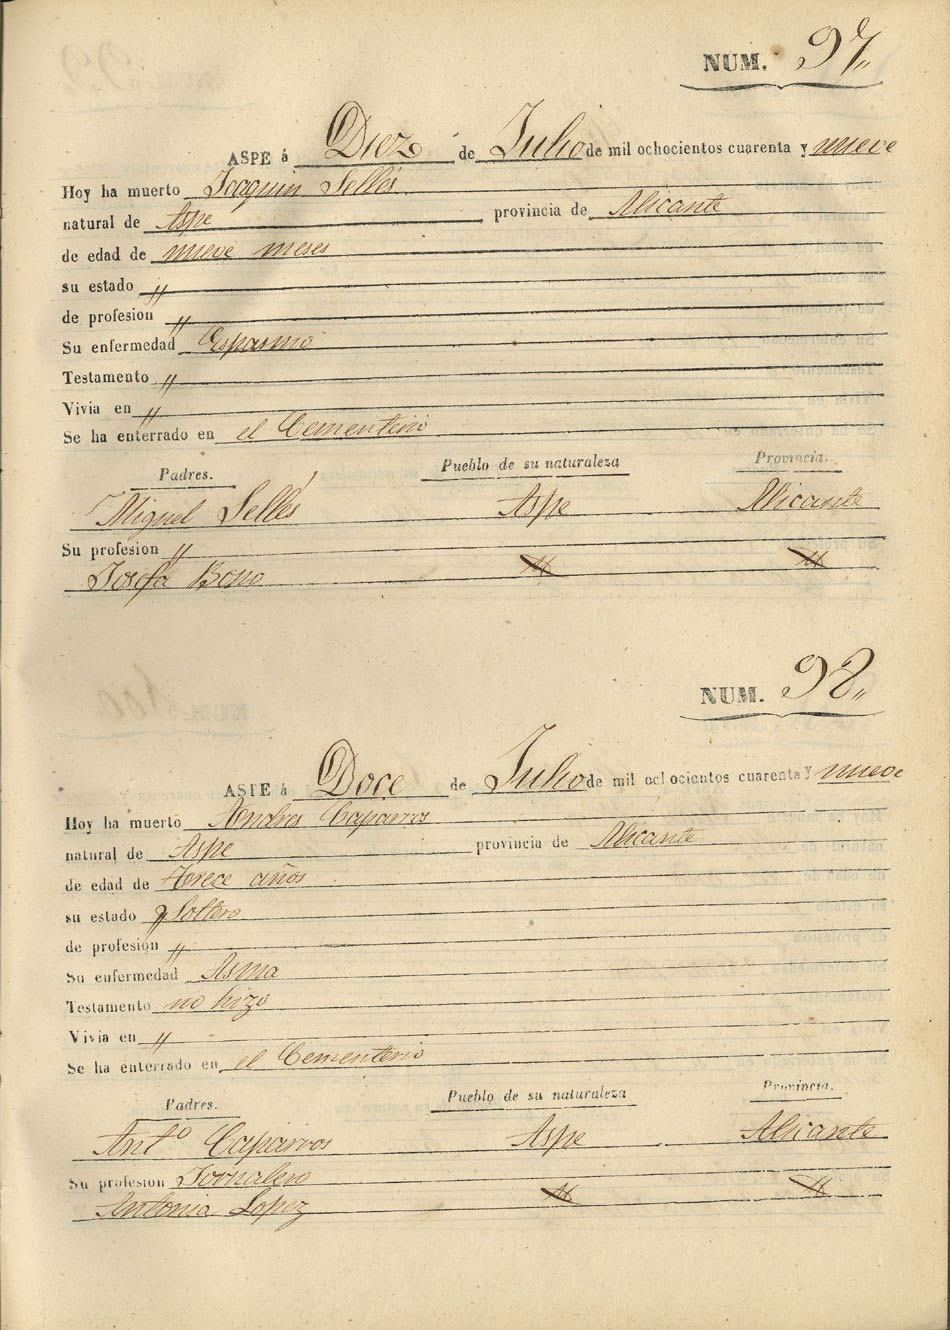 NUM. 97,,
ASPE á Diez de Julio de mil ochocientos cuarenta y nueve
Hoy ha muerto Joaquin Sellés
natural de Aspe provincia de Alicante
de edad de nueve meses
su estado "
de profesion "
Su enfermedad Espasmo
Testamento "
Vivia en "
Se ha enterrado en el Cementerio
Padres. Pueblo de su naturaleza Provincia.
Miguel Sellés Aspe Alicante
Su profesion "
Josefa " "
NUM. 98,,
ASPE á Doce de Julio de mil ochocientos cuarenta y nueve
Hoy ha muerto Andres Caparros
natural de Aspe provincia de Alicante
de edad de trece años
su estado Soltero
de profesion "
Su enfermedad Asma
Testamento no hizo
Vivia en "
Se ha enterrado en el Cementerio
Padres. Pueblo de su naturaleza Provincia.
Antº Caparros Aspe Alicante
Su profesion Jornalero
Antonia Lopez " "